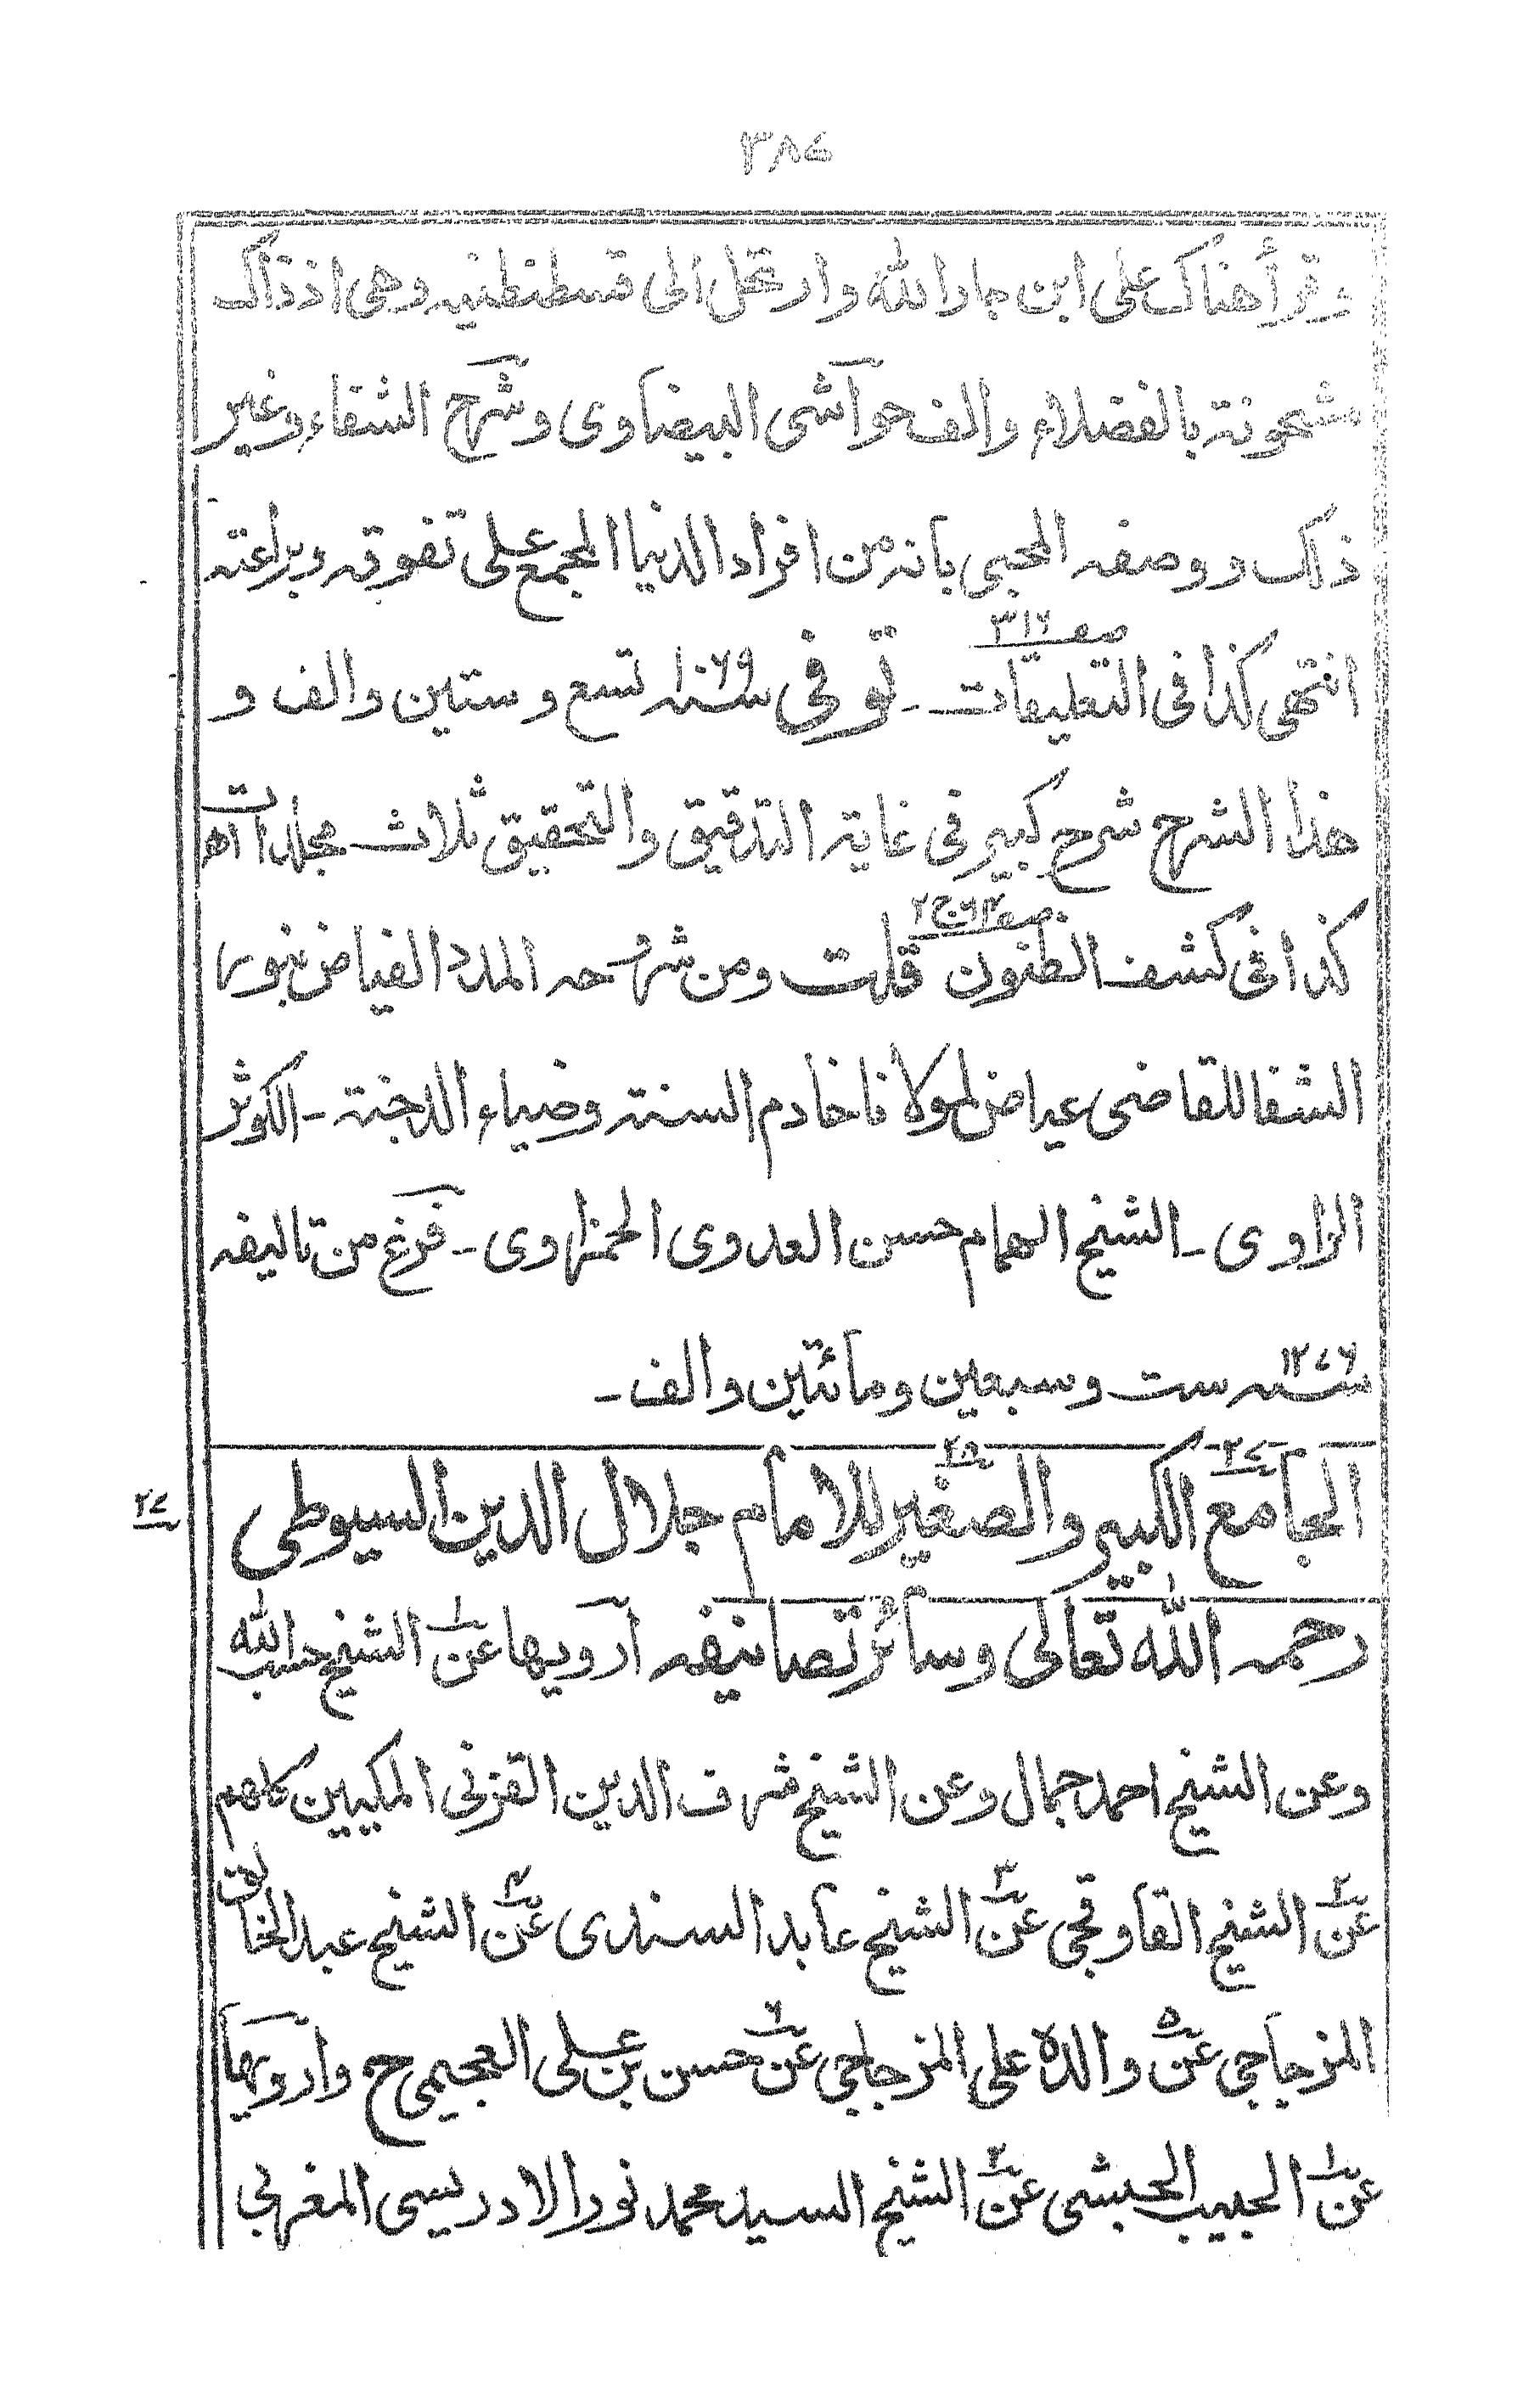 ٣٨٧
وقرأ هناك على ابن جار الله وارتحل الى قسطنطنيه وهى اذ ذاك
مشحونة بالفضلاء والف حواشى البيضاوى وشرح الشفاء وغير
ذلك ووصفه المحبى بانه من افراد الدنيا المجمع على تفوقه وبراعته
صفـ ٣١٦
انتهى كذا فى التعليقات ـ توفى سنه ١٠٦٩ تسع وستين والف و
هذا الشرح شرح كبير فى غاية التدقيق والتحقيق ثلاث مجلدات اه
كذا فى كشف الظنون قلت ومن شروحه المدد الفياض بنور
الشفا للقاضى عياض لمولانا خادم السنة وضياء الدجنة ـ الكوثر
الراوى ـ الشيخ الهمام حسن العدوى الحمزاوى ـ فرغ من تاليفه
سنه ١٢٧٦ ست وسبعين ومائتين والف ـ
٢٧ ٢٨
الجامع الكبير والصغير للامام جلال الدين السيوطى
٢٧
رحمه الله تعالى وسائر تصانيفه ارويها عن١ الشيخ حسب الله
وعن الشيخ احمد جمال وعن الشيخ شرف الدين القزنى المكيين كلهم
عن٢ الشيخ القاوقجى عن٣ الشيخ عابد السندى عن٤ الشيخ عبد الخالق
المزجاجى عن٥ والده على المزجاجى عن٦ حسن بن على العجيمى ح وارويها
عن١ الحبيب الحبشى عن٢ الشيخ السيد محمد نور الادريسى المغربى